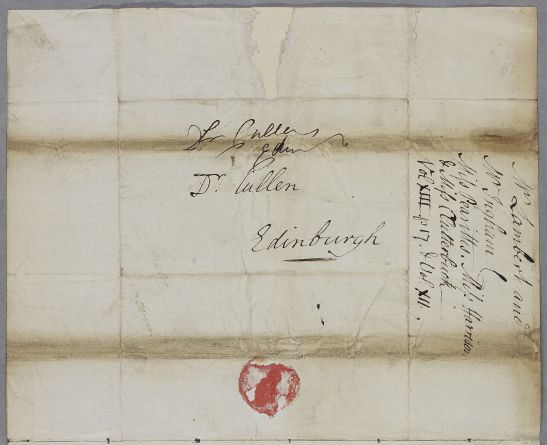 Dr Cullens
Edinr
Dr. Cullen
Edinburgh
Mr Lambert and
Mr Ingham
Miss Harrison
& Miss Clutterbuck
Vol XIII p 17 & Vol XII,